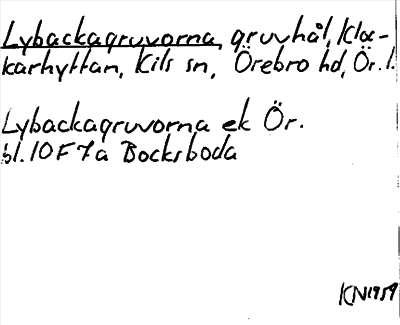 Lybackagruvorna, gruvhål, Kla-
karhyttan, Kils sn, Örebro hd, Ör. l.
Lybackagruvorna ek Ör.
bl. 10 F 7a Bocksboda
KN 1959